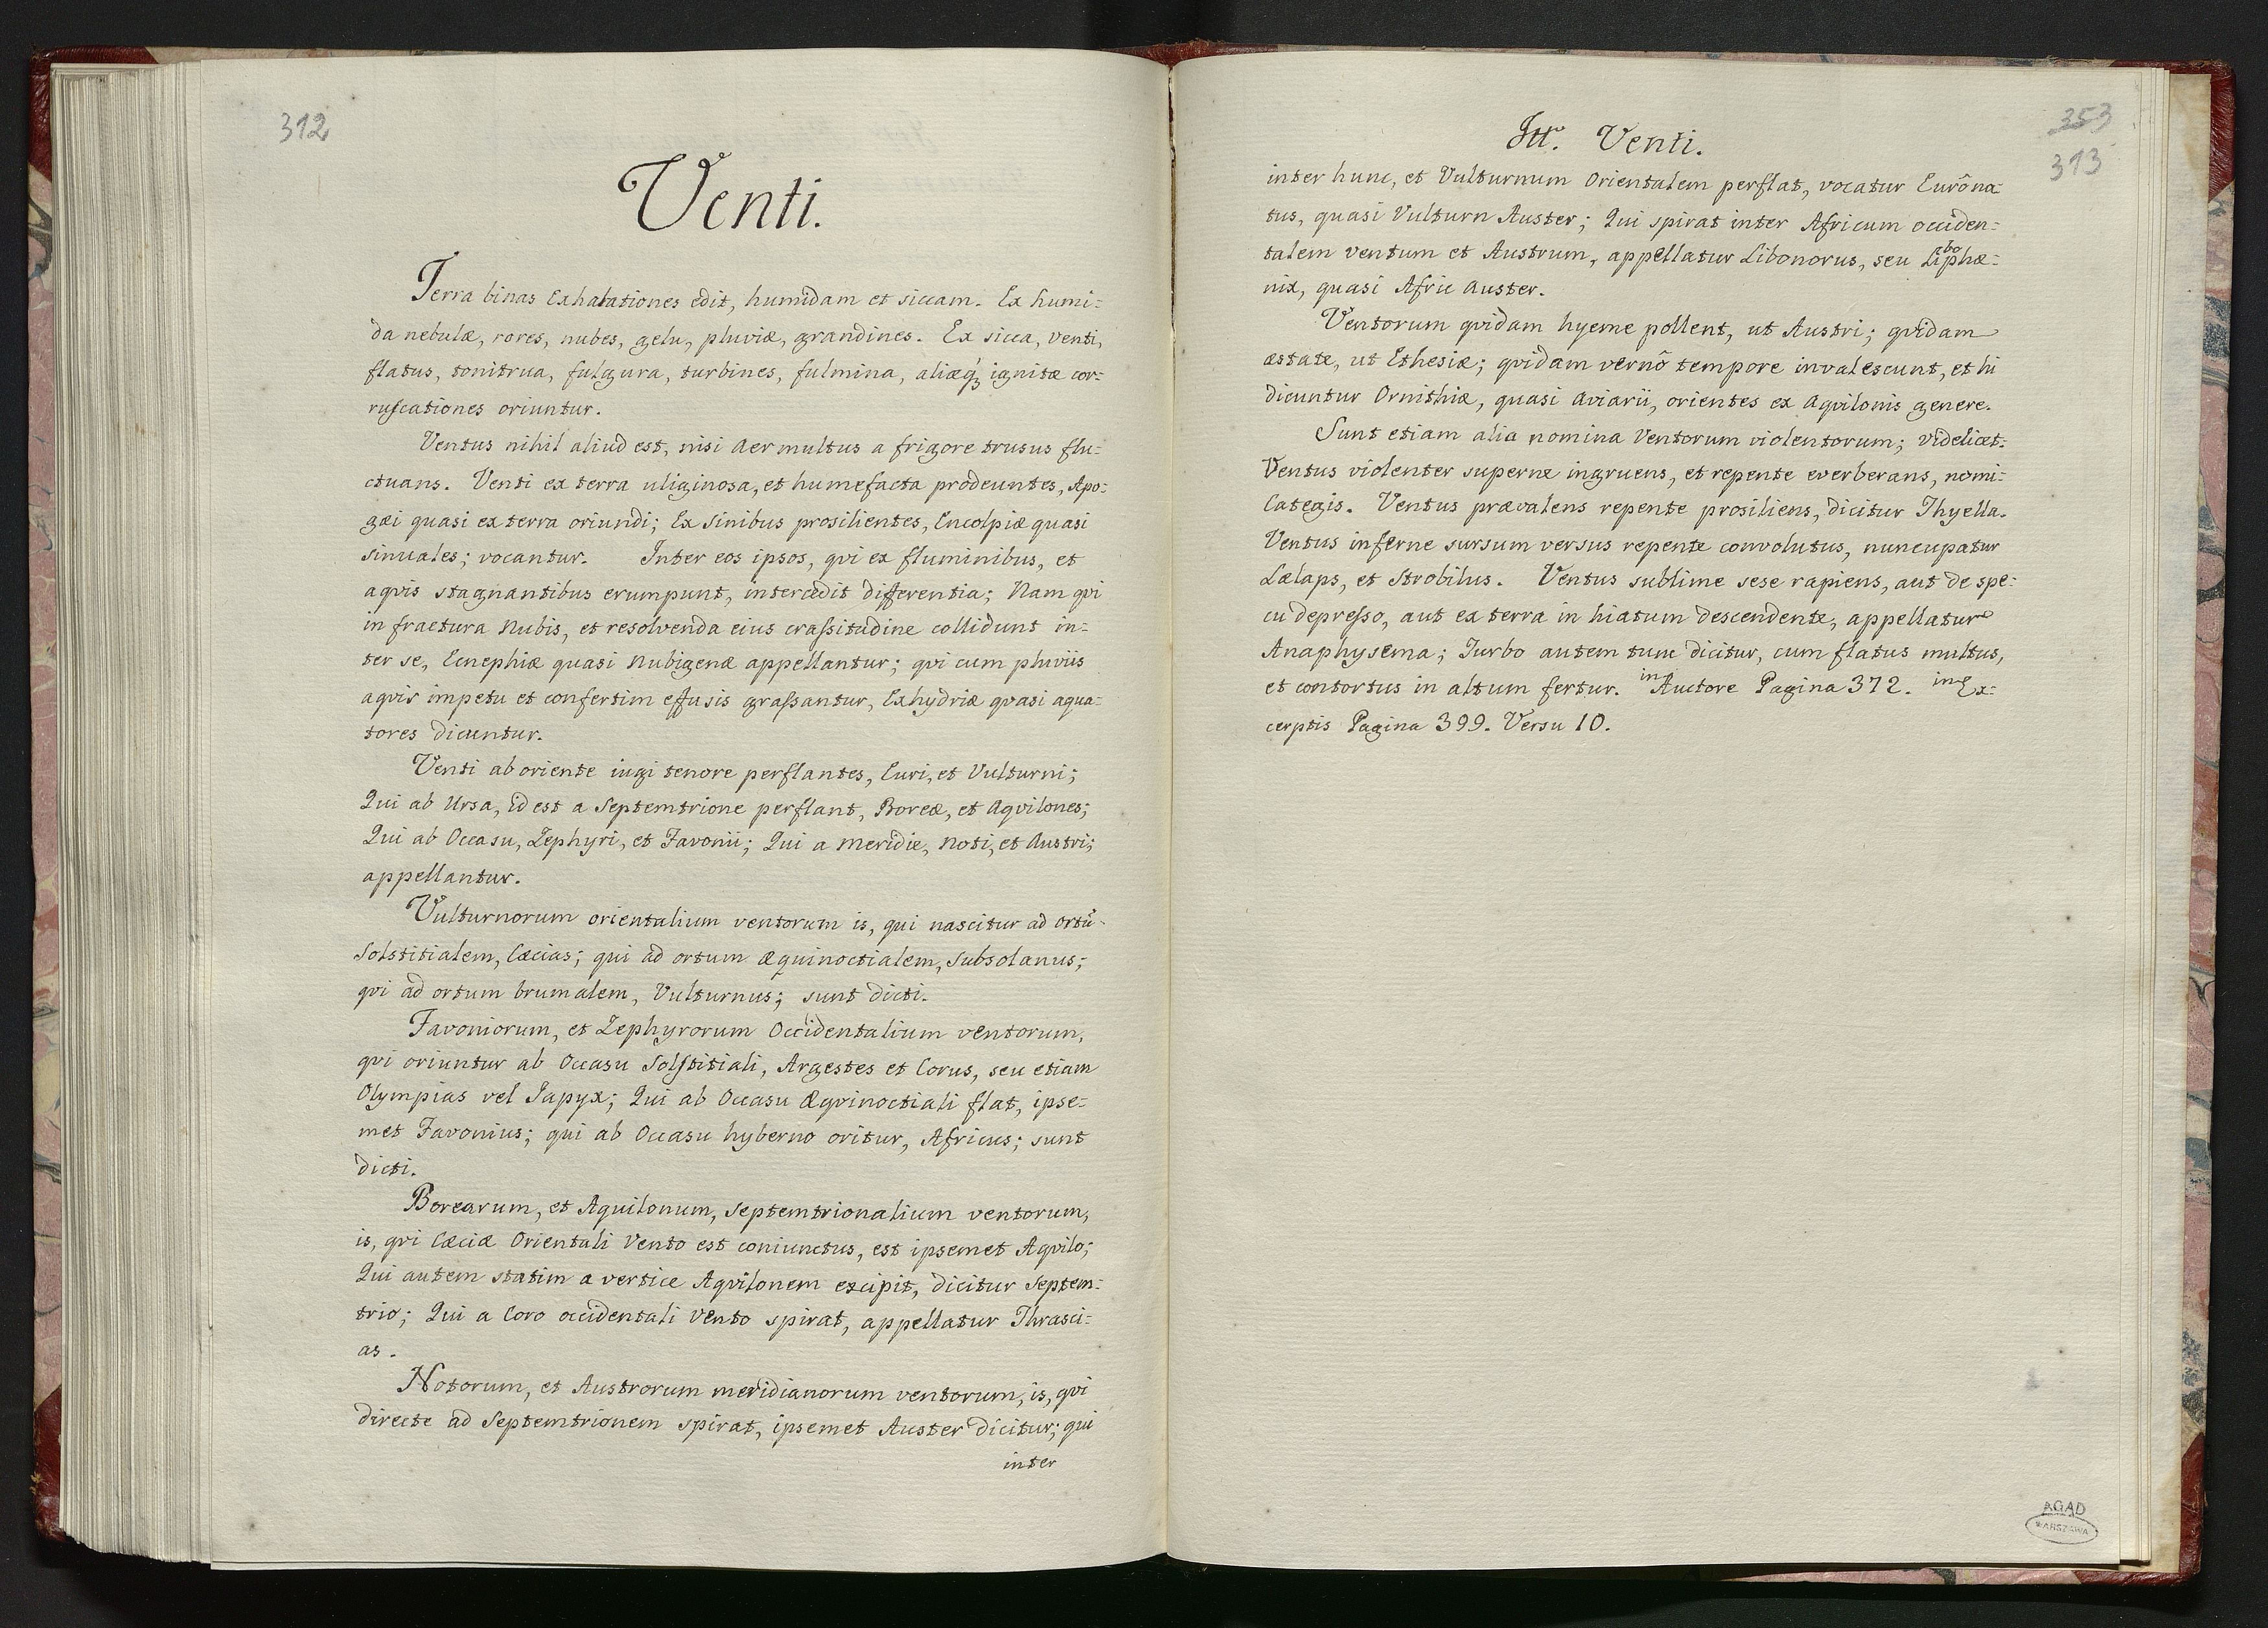 312
Venti.
Terra binas Exhalationes edit, humidam et siccam. Ex humi=
da nebulæ, rores, nubes, gelu, pluviæ, grandines. Ex sicca, venti,
flatus, tonitrua, fulgura, turbines, fulmina, aliæq́ꝫ ignitæ cor=
ruſcationes oriuntur.
Ventus nihil aliud est, nisi aer multus a frigore trusus flu=
ctuans. Venti ex terra uliginosa, et humefacta prodeuntes, Apo=
gæi quasi ex terra oriundi; Ex sinibus prosilientes, Encolpiæ quasi
sinuales; vocantur. Inter eos ipsos, qvi ex fluminibus, et
aqvis stagnantibus erumpunt, intercedit differentia; Nam qvi
in fractura Nubis, et resolvenda eius craſsitudine collidunt in=
ter se, Ecnephiæ quasi Nubigenæ appellantur; qvi cum pluviis
aqvis impetu et confertim effusis graſsantur, Exhydriæ qvasi aqua=
tores dicuntur.
Venti ab oriente iugi tenore perflantes, Euri, et Vulturni;
Qui ab Ursa, id est a Septemtrione perflant, Boreæ, et Aqvilones;
Qui ab Occasu, Zephyri, et Favonii; Qui a meridie, Noti, et Austri;
appellantur.
Vulturnorum orientalium ventorum is, qui nascitur ad ortũ
Solstitialem, Cæcias; qui ad ortum Æquinoctialem, Subsolanus;
qvi ad ortum brumalem, Vulturnus; sunt dicti.
Favoniorum, et Zephyrorum Occidentalium ventorum,
qvi oriuntur ab Occasu Solſtitiali, Argestes et Corus, seu etiam
Olympias vel Iapyx; Qui ab Occasu Æqvinoctiali flat, ipse=
met Favonius; qui ab Occasu hyberno oritur, Africus; sunt
dicti.
Borearum, et Aquilonum, Septemtrionalium ventorum,
is, qvi Cæciæ Orientali Vento est coniunctus, est ipsemet Aqvilo;
Qui autem statim a vertice Aqvilonem excipit, dicitur Septem=
trio; Qui a Coro occidentali Vento spirat, appellatur Thrasci=
as.
Notorum, et Austrorum meridianorum ventorum, is, qvi
directe ad Septemtrionem spirat, ipsemet Auster dicitur; qui
inter
353
313
Itt. Venti.
inter hunc, et Vulturnum Orientalem perflat, vocatur Eurôna=
tus, quasi Vulturn Auster; Qui spirat inter Africum occiden=
talem ventum et Austrum, appellatur Libonorus, seu Libophæ=
nix, quasi Afric Auster.
Ventorum qvidam hyeme pollent, ut Austri; qvidam
æstate, ut Ethesiæ; qvidam vernô tempore invalescunt, et hi
dicuntur Ornithiæ, quasi aviarii, orientes ex Aqvilonis genere.
Sunt etiam alia nomina Ventorum violentorum; videlicet:
Ventus violenter superne ingruens, et repente everberans, nomi:
Categis. Ventus prævalens repente prosiliens, dicitur Thyella.
Ventus inferne sursum versus repente convolutus, nuncupatur
Lælaps, et Strobilus. Ventus sublime sese rapiens, aut de spe=
cu depreſso, aut ex terra in hiatum descendente, appellatur
Anaphysema; Turbo autem tunc dicitur, cum flatus multus,
et contortus in altum fertur. in Auctore Pagina 372. in Ex=
cerptis Pagina 399. Versu 10.
AGAD
WARSZAWA